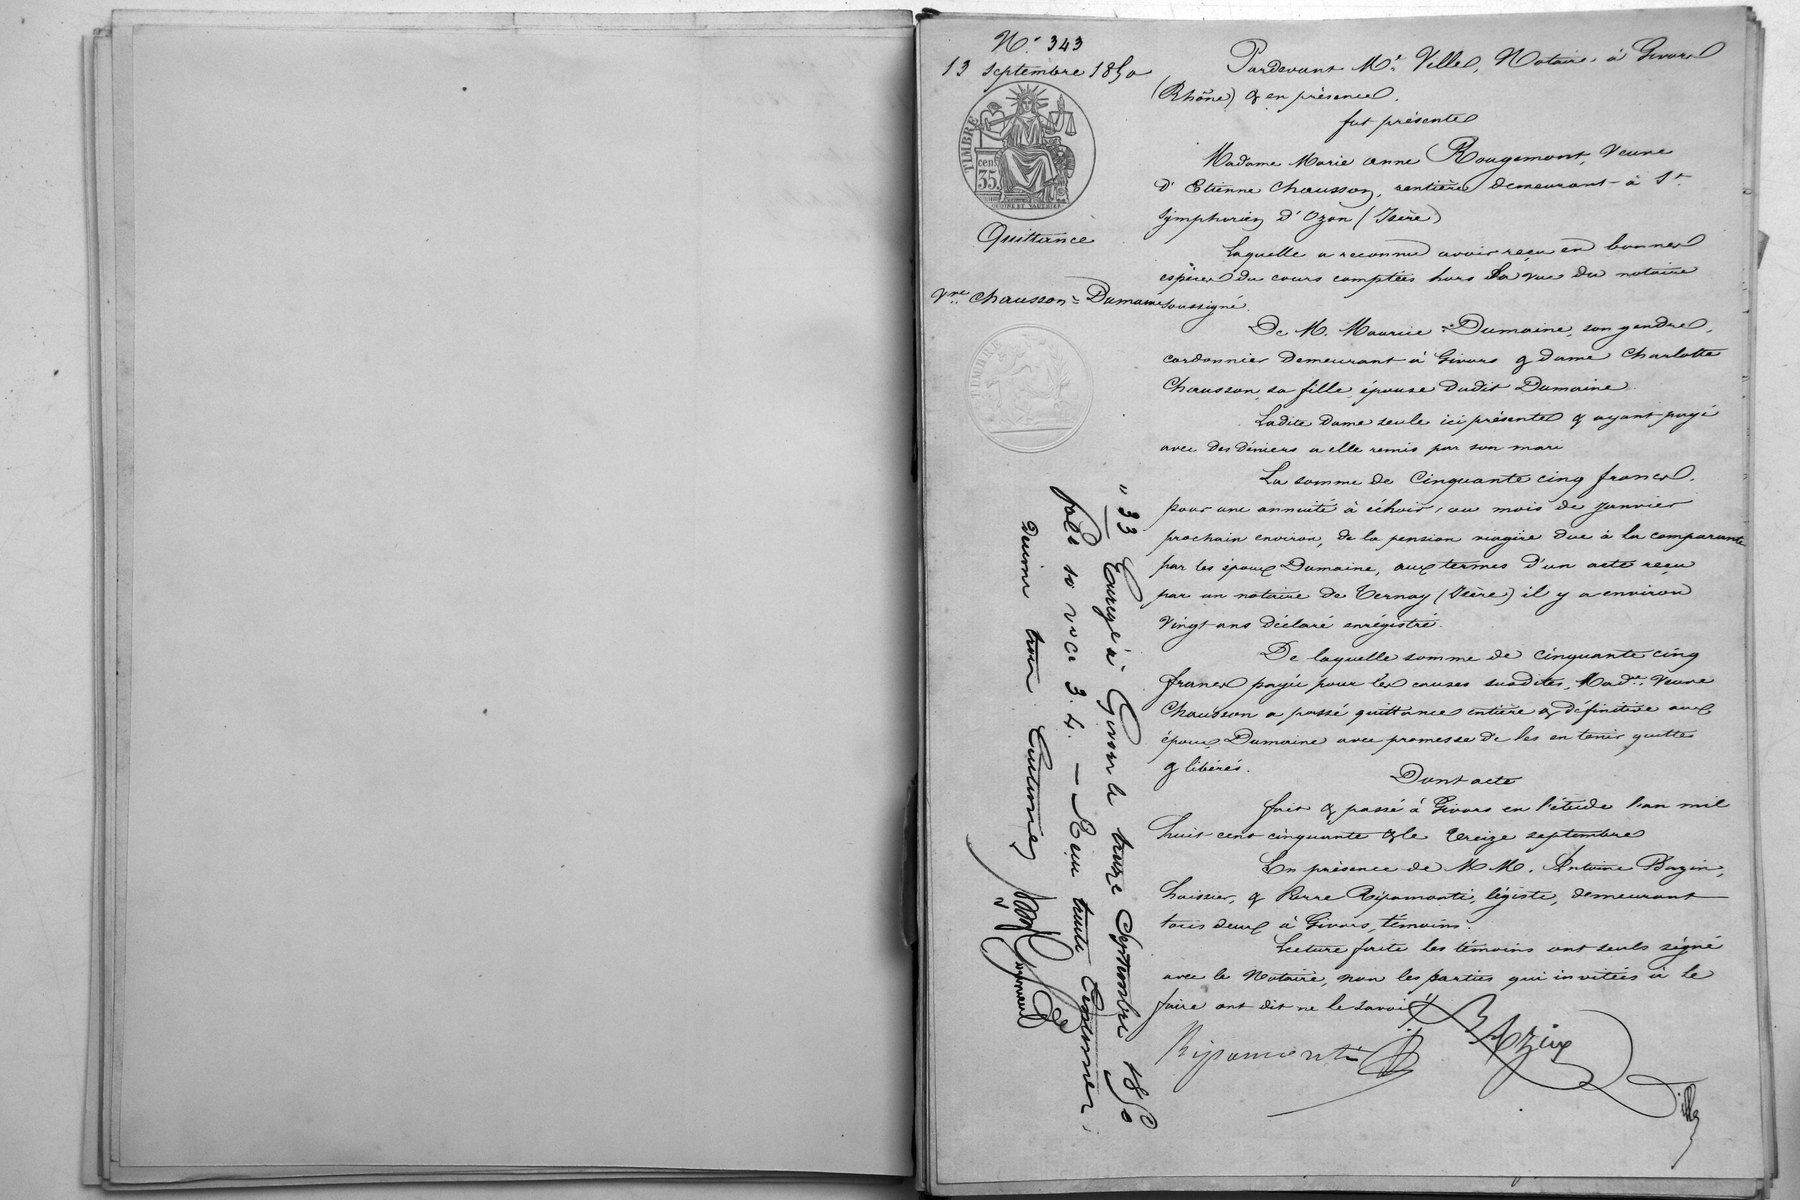 N.° 343
13 septembre 1850
TIMBRE
cent
35.
Quittance
Vve chausson = Dumaine
TIMBRE
Pardevant Me Ville, Notaire à Givors
(Rhône) & en présence.
fut présente
Madame Marie anne Rougemont, veuve
d'Etienne chausson, rentière demeurant à St
symphorien d'Ozon (Isère)
Laquelle a reconnu avoir reçu en bonnes
espèces du cours comptées hors la vue du notaire
soussigné.
De M. Maurice Dumaine, son gendre,
cordonnier demeurant à Givors & dame Charlotte
Chausson, sa fille, épouse dudit Dumaine.
Ladite dame seule ici présente & ayant payé
avec des déniers a elle remis par son mari
La somme de Cinquante cinq francs.
pour une annuité à échoir, au mois de janvier
prochain environ, de la pension viagère due à la comparante
par les époux Dumaine, aux termes d'un acte reçu
par un notaire de Ternay (Isère) il y a environ
vingt ans déclaré enrégistré.
De laquelle somme de cinquante cinq
francs payée pour les causes susdites, Made veuve
Chausson a passé quittance entière & définitive aux
époux Dumaine avec promesse de les en tenir quittes
& libérés.
Dont acte
fait & passé à Givors en l'étude l'an mil
huit cent cinquante & le treize septembre
En présence de M M. Antoine Bazin,
huissier, & Pierre Ripamonti, légiste, demeurant
tous deux à Givors, témoins.
Lecture faite les témoins ont seuls signé
avec le Notaire, non les parties qui invitées à le
faire ont dit ne le savoir
Ripamonti
BAzin
Ville
" 33 Enregé à Givors le treize Septembre 1850
folo 10 vo ce 3. 4. — Reçu trente centimes
Décime trois Centimes